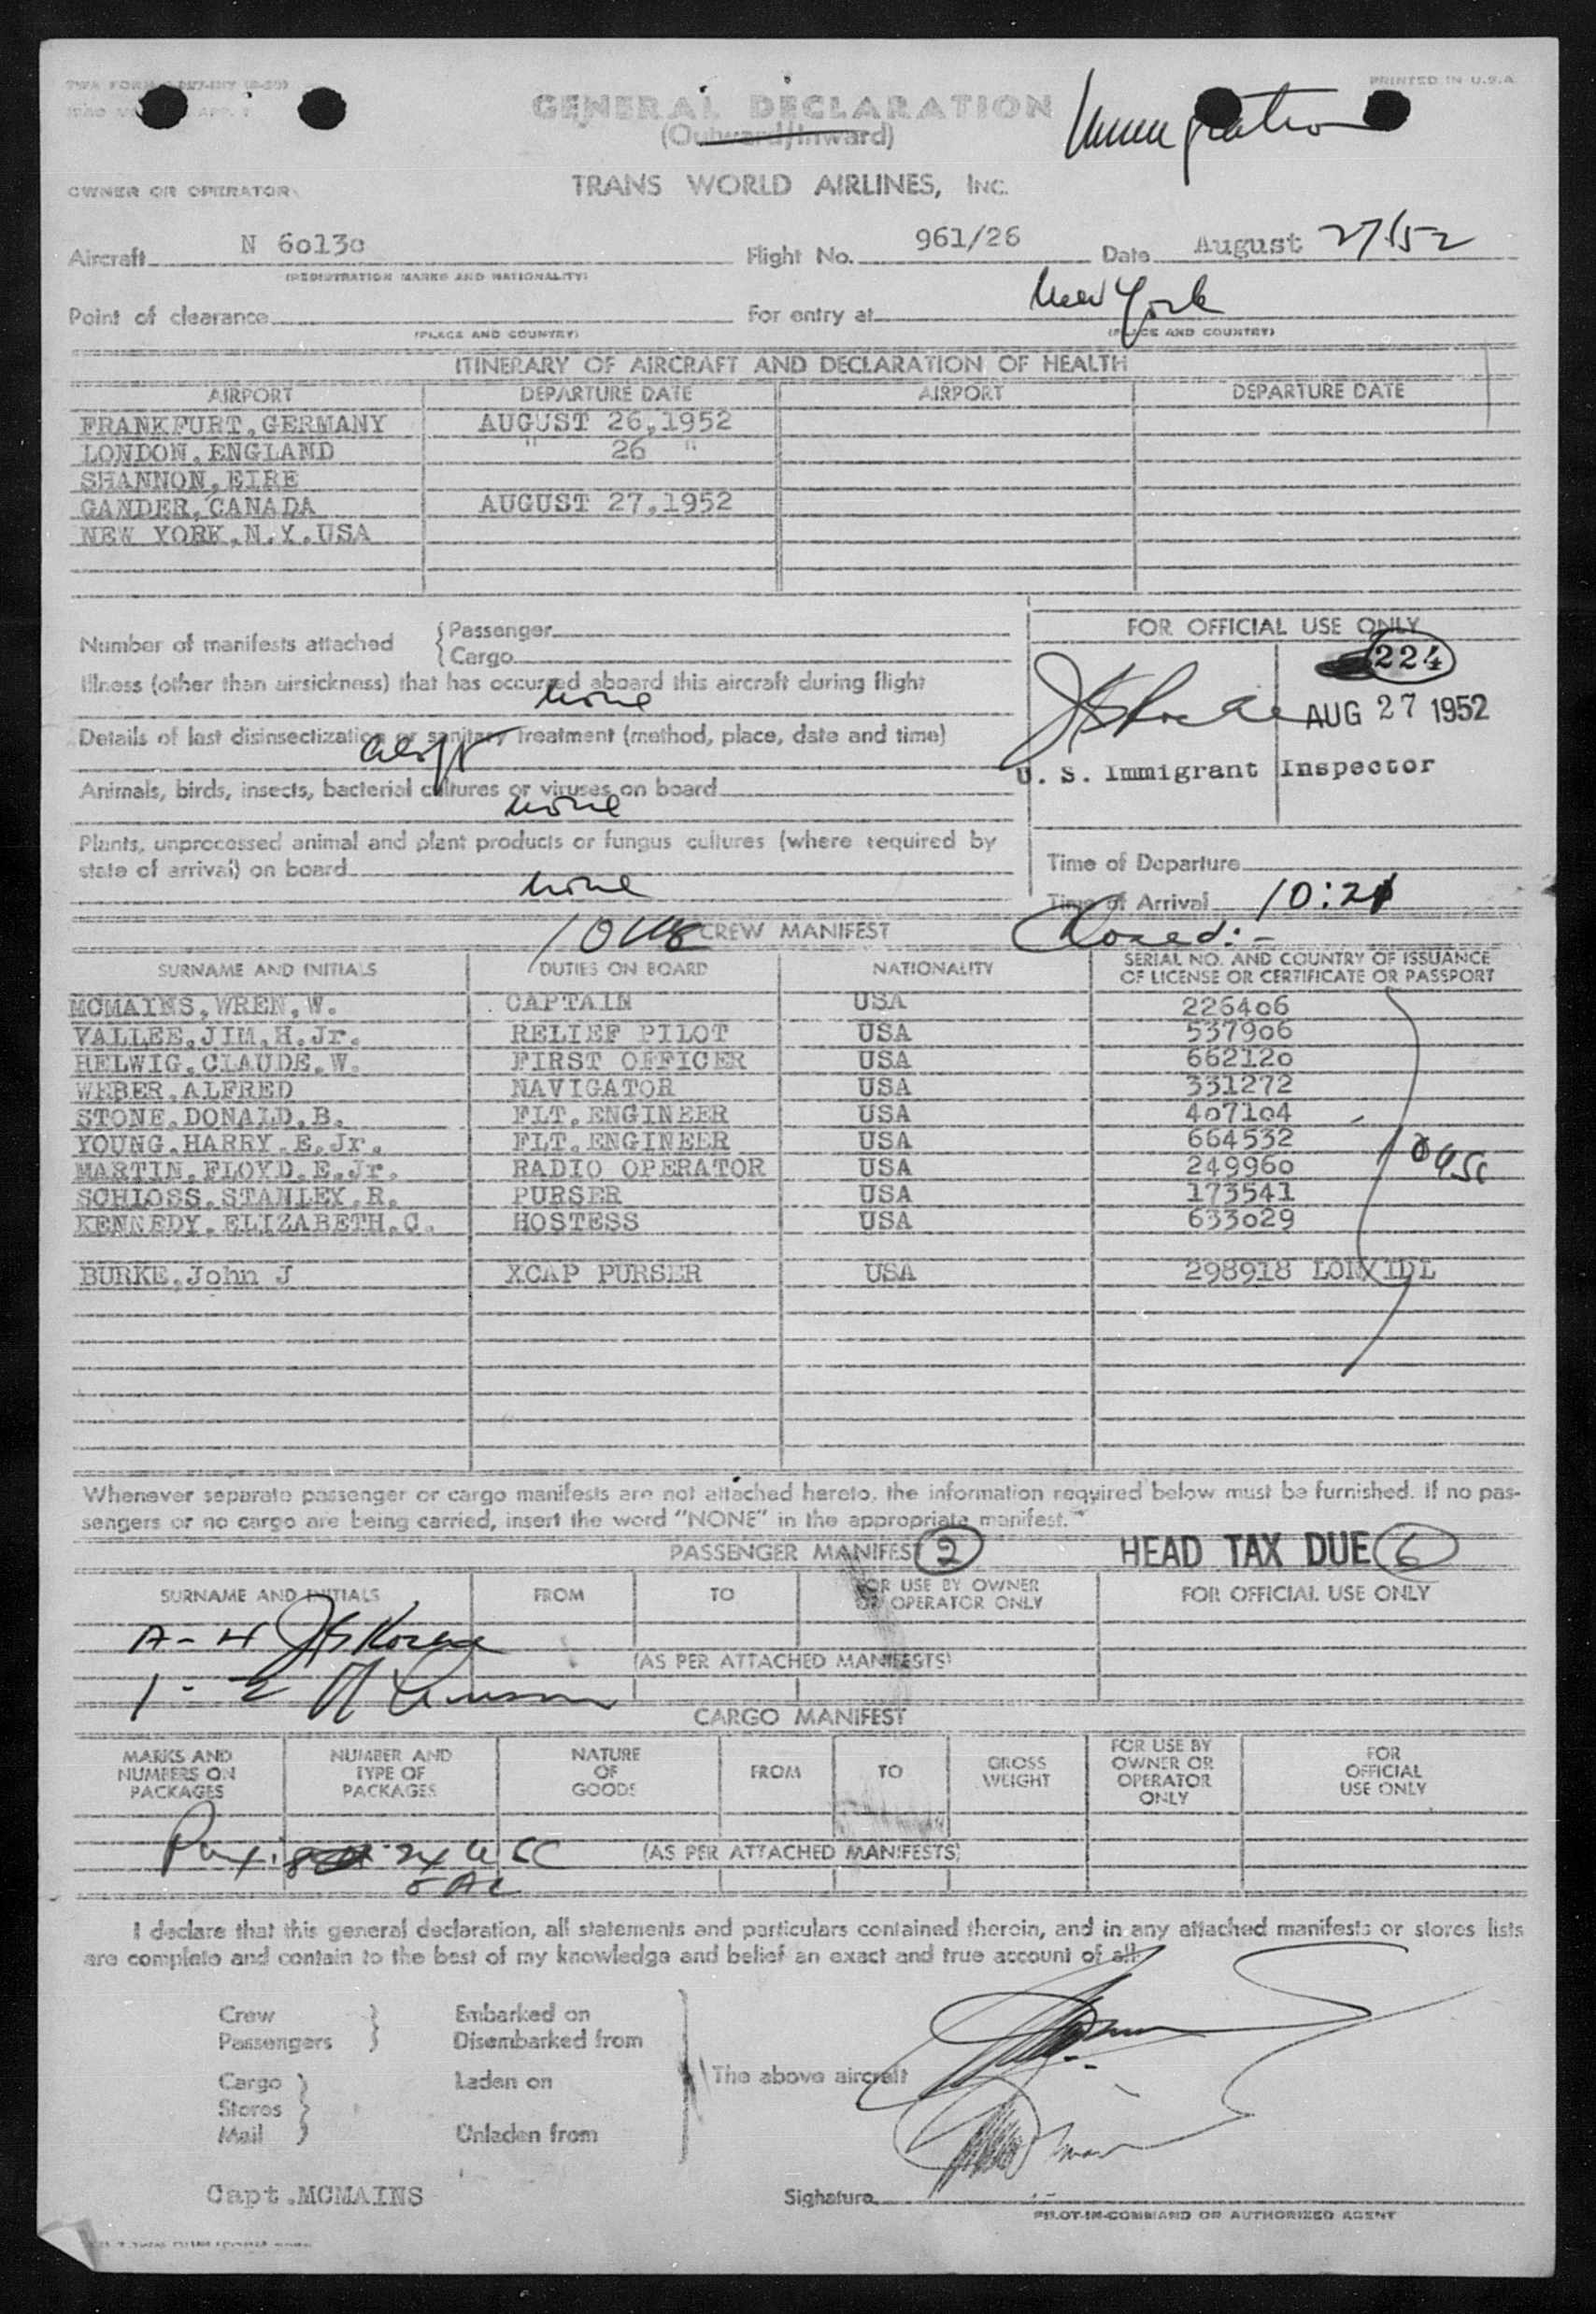 PRINTED IN U.S.A.
GENERAL DECLARATION
(Outward/Inward)
Immigration
OWNER OR OPERATOR
TRANS WORLD AIRLINES, INC.
Aircraft N 60130 Flight No. 961/26 Date August 27/52
(REGISTRATION MARKS AND NATIONALITY)
Point of clearance For entry at New York
(PLACE AND COUNTRY) (PLACE AND COUNTRY)
ITINERARY OF AIRCRAFT AND DECLARATION OF HEALTH
AIRPORT DEPARTURE DATE AIRPORT DEPARTURE DATE
FRANKFURT, GERMANY AUGUST 26,1952
LONDON, ENGLAND " 26 "
SHANNON, EIRE
GANDER, CANADA AUGUST 27,1952
NEW YORK, N.Y. USA
Number of manifests attached { Passenger
{ Cargo
Illness (other than airsickness) that has occurred aboard this aircraft during flight
none
Details of last disinsectization or sanitary treatment (method, place, date and time)
Animals, birds, insects, bacterial cultures or viruses on board
none
Plants, unprocessed animal and plant products or fungus cultures (where required by
state of arrival) on board
none
FOR OFFICIAL USE ONLY
224
AUG 27 1952
U. S. Immigrant Inspector
Time of Departure
Time of Arrival 10:21
Closed:-
CREW MANIFEST
SURNAME AND INITIALS DUTIES ON BOARD NATIONALITY SERIAL NO. AND COUNTRY OF ISSUANCE
OF LICENSE OR CERTIFICATE OR PASSPORT
MCMAINS, WREN, W. CAPTAIN USA 226406
VALLEE, JIM, H. Jr. RELIEF PILOT USA 537906
HELWIG, CLAUDE, W. FIRST OFFICER USA 662120
WEBER, ALFRED NAVIGATOR USA 331272
STONE, DONALD, B. FLT. ENGINEER USA 407104
YOUNG, HARRY, E. Jr. FLT. ENGINEER USA 664532
MARTIN, FLOYD, E. Jr. RADIO OPERATOR USA 249960
SCHLOSS, STANLEY, R. PURSER USA 173541
KENNEDY, ELIZABETH, C. HOSTESS USA 633029
BURKE, John J XCAP PURSER USA 298918
Whenever separate passenger or cargo manifests are not attached hereto, the information required below must be furnished. If no pas-
sengers or no cargo are being carried, insert the word "NONE" in the appropriate manifest.
PASSENGER MANIFEST 2 HEAD TAX DUE 6
SURNAME AND INITIALS FROM TO FOR USE BY OWNER OR OPERATOR ONLY FOR OFFICIAL USE ONLY
A - H
(AS PER ATTACHED MANIFESTS)
I - Z
CARGO MANIFEST
MARKS AND NUMBERS ON PACKAGES NUMBER AND TYPE OF PACKAGES NATURE OF GOODS FROM TO GROSS WEIGHT FOR USE BY OWNER OR OPERATOR ONLY FOR OFFICIAL USE ONLY
(AS PER ATTACHED MANIFESTS)
I declare that this general declaration, all statements and particulars contained therein, and in any attached manifests or stores lists
are complete and contain to the best of my knowledge and belief an exact and true account of all
Crew Embarked on
Passengers Disembarked from
Cargo Laden on The above aircraft
Stores
Mail Unladen from
Capt. MCMAINS Signature
PILOT-IN-COMMAND OR AUTHORIZED AGENT